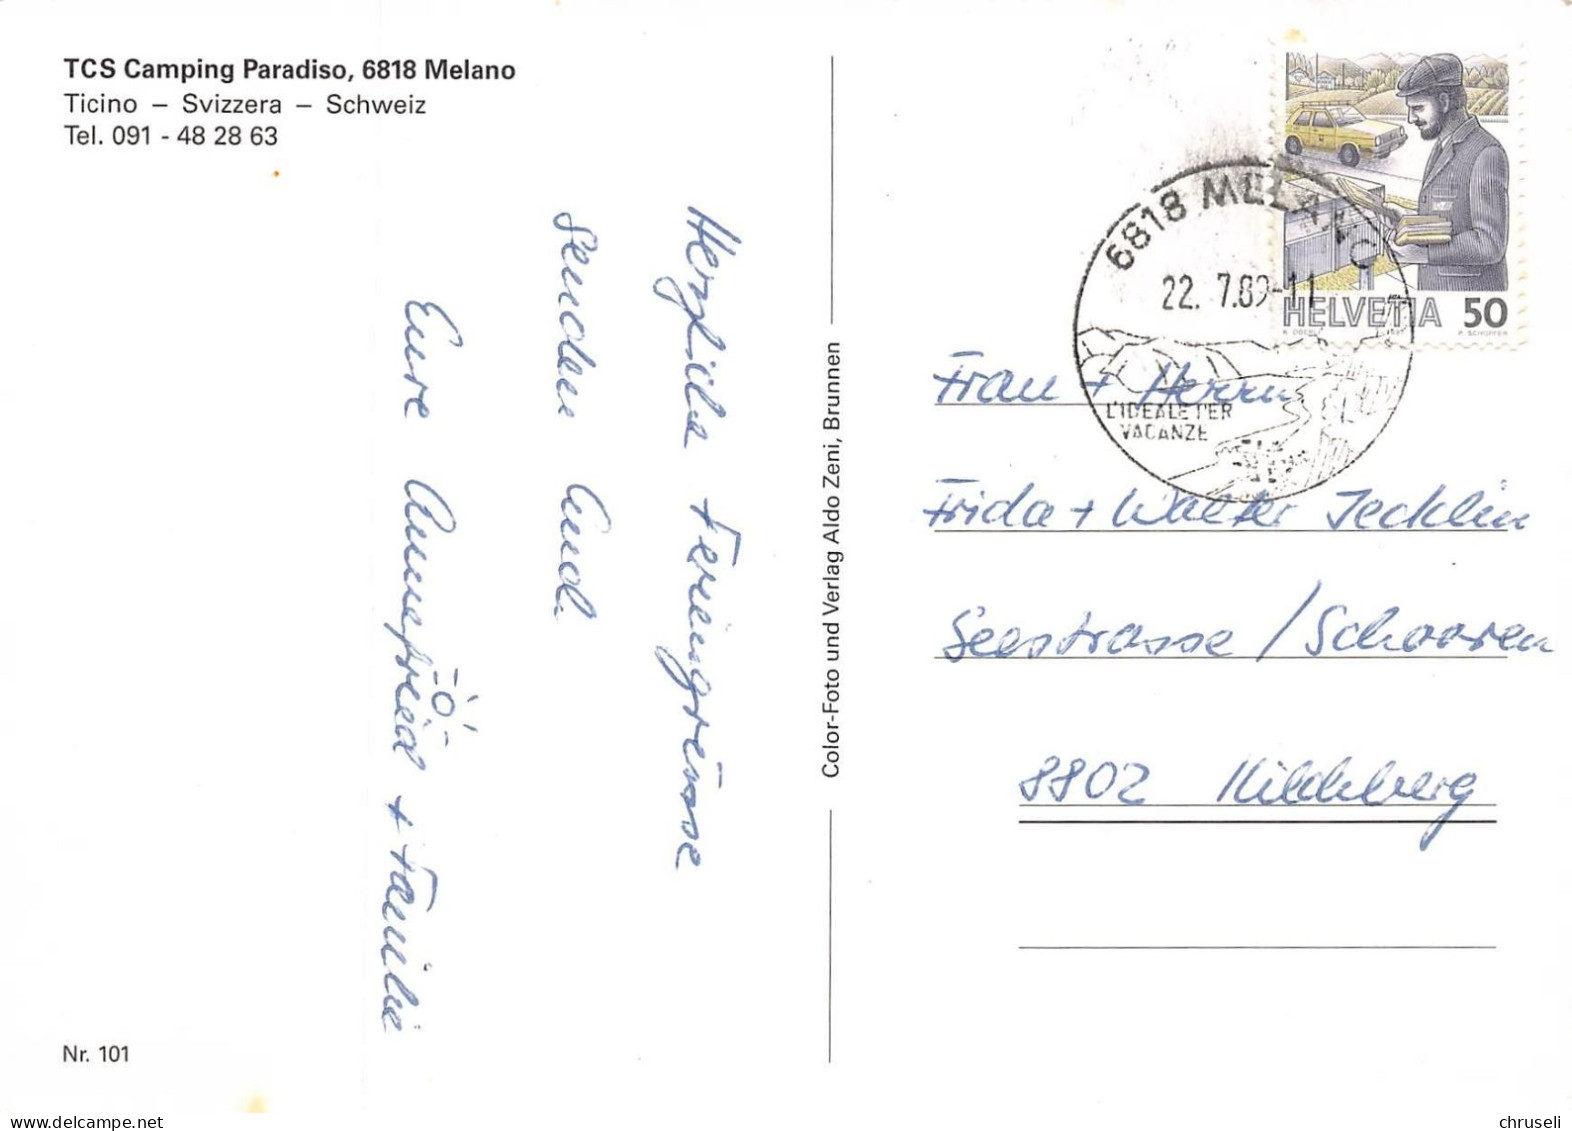 TCS Camping Paradiso, 6818 Melano
Ticino – Svizzera – Schweiz
Tel. 091 - 48 28 63
Herzliche Feriengrüsse
senden Euch
Eure Annefried + Familie
Nr. 101
Color-Foto und Verlag Aldo Zeni, Brunnen
6818 MELANO
22. 7.89-11
L'IDEALE PER
VACANZE
HELVETIA 50
Frau + Herrn
Frida + Walter Jecklin
Seestrasse / Schooren
8802 Kilchberg
chruseli